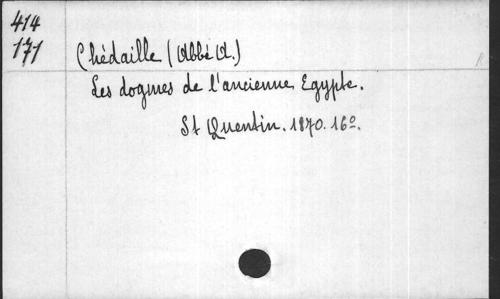 414
171
Chédaille (Abbé A.)
Les dogmes de l'ancienne Egypte.
St Quentin. 1870. 16º.